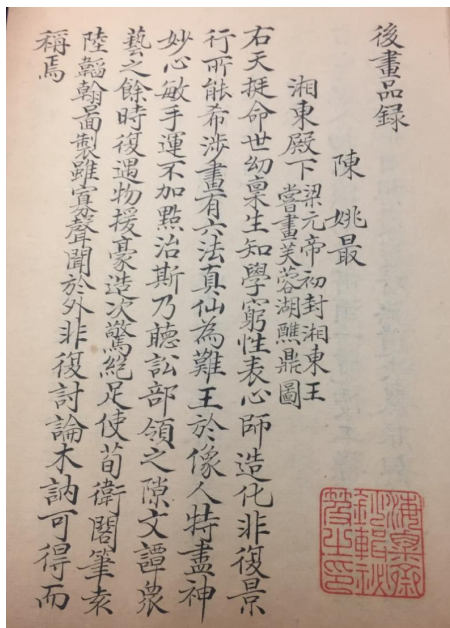 後畫品録
陳 姚最
湘東殿下
梁元帝初封湘東王
嘗畫芙蓉湖醮鼎圖
右天挺命世幼稟生知學窮性表心師造化非復景
行所能希涉畫有六法真仙為難王於像人特盡神
妙心敏手運不加點治斯乃聽訟部領之隙文譚衆
藝之餘時復遇物援豪造次驚絕足使荀衛閣筆袁
陸韜翰啚製雖寡聲聞於外非復討論木訥可得而
稱焉